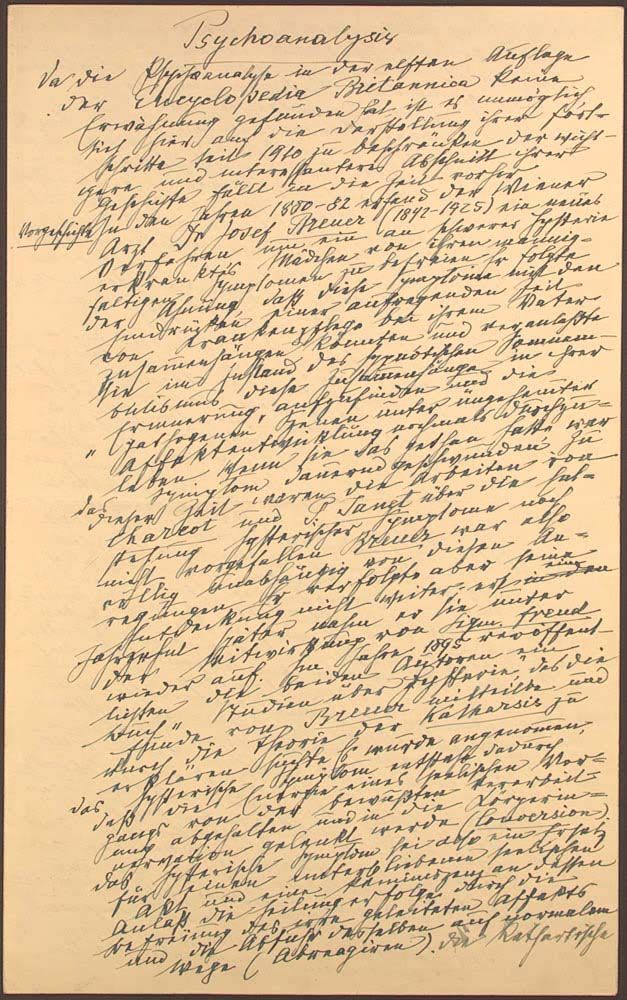 Psychoanalysis
Da die Psychoanalyse in der elften Auflage
der Encyclopaedia Britannica keine
Erwähnung gefunden hat ist es unmöglich
sich hier auf die Darstellung ihrer Fort-
schritte seit 1910 zu beschränken. Der wich-
tigere und interessantere Abschnitt ihrer
Geschichte fällt in die Zeit vorher.
Vorgeschichte In den Jahren 1880-82 erfand der Wiener
Arzt Dr Josef Breuer (1842-1925) ein neues
Verfahren um ein an schwerer Hysterie
erkranktes Mädchen von ihren mannig=
faltigen Symptomen zu befreien. Er folgte
der Ahnung, daß diese Symptome mit den
Eindrücken einer aufregenden Zeit
von Krankenpflege bei ihrem Vater
zusammenhängen könnten und veranlaßte
sie im Zustand des hypnotischen Somnam-
bulismus diese Zusammenhänge in ihrer
Erinnerung aufzufinden und die
"pathogenen" Szenen unter ungehemmter
Affektentwicklung nochmals durchzu=
leben. Wenn sie das gethan hatte war
das Symptom dauernd geschwunden. Zu
dieser Zeit waren die Arbeiten von
Charcot und P. Janet über die Ent-
stehung hysterischer Symptome noch
nicht vorgefallen. Breuer war also
völlig unabhängig von diesen An-
regungen. Er verfolgte aber seine
Entdeckung nicht weiter, erst ein
Jahrzehnt später nahm er sie unter
der Mitwirkung von Sigm. Freud
wieder auf. Im Jahre 1895 veröffent-
lichten die beiden Autoren ein
Buch "Studien über Hysterie" das die
Funde von Breuer mitteilte und
durch die Theorie der Katharsis zu
erklären suchte. Es wurde angenommen,
das hysterische Symptom entsteht dadurch
daß die Energie eines seelischen Vor-
gangs von der bewußten Verarbeit-
ung abgehalten und in die Körperin-
nervation gelenkt werde (Conversion).
das hysterische Symptom sei also ein Ersatz
für einen unterbliebenen seelischen
Akt und eine Reminiszenz an dessen
Anlaß. die Heilung erfolge durch die
Befreiung des irre geleiteten Affekts
und die Abfuhr desselben auf normalem
Wege (Abreagiren). die Kathartische